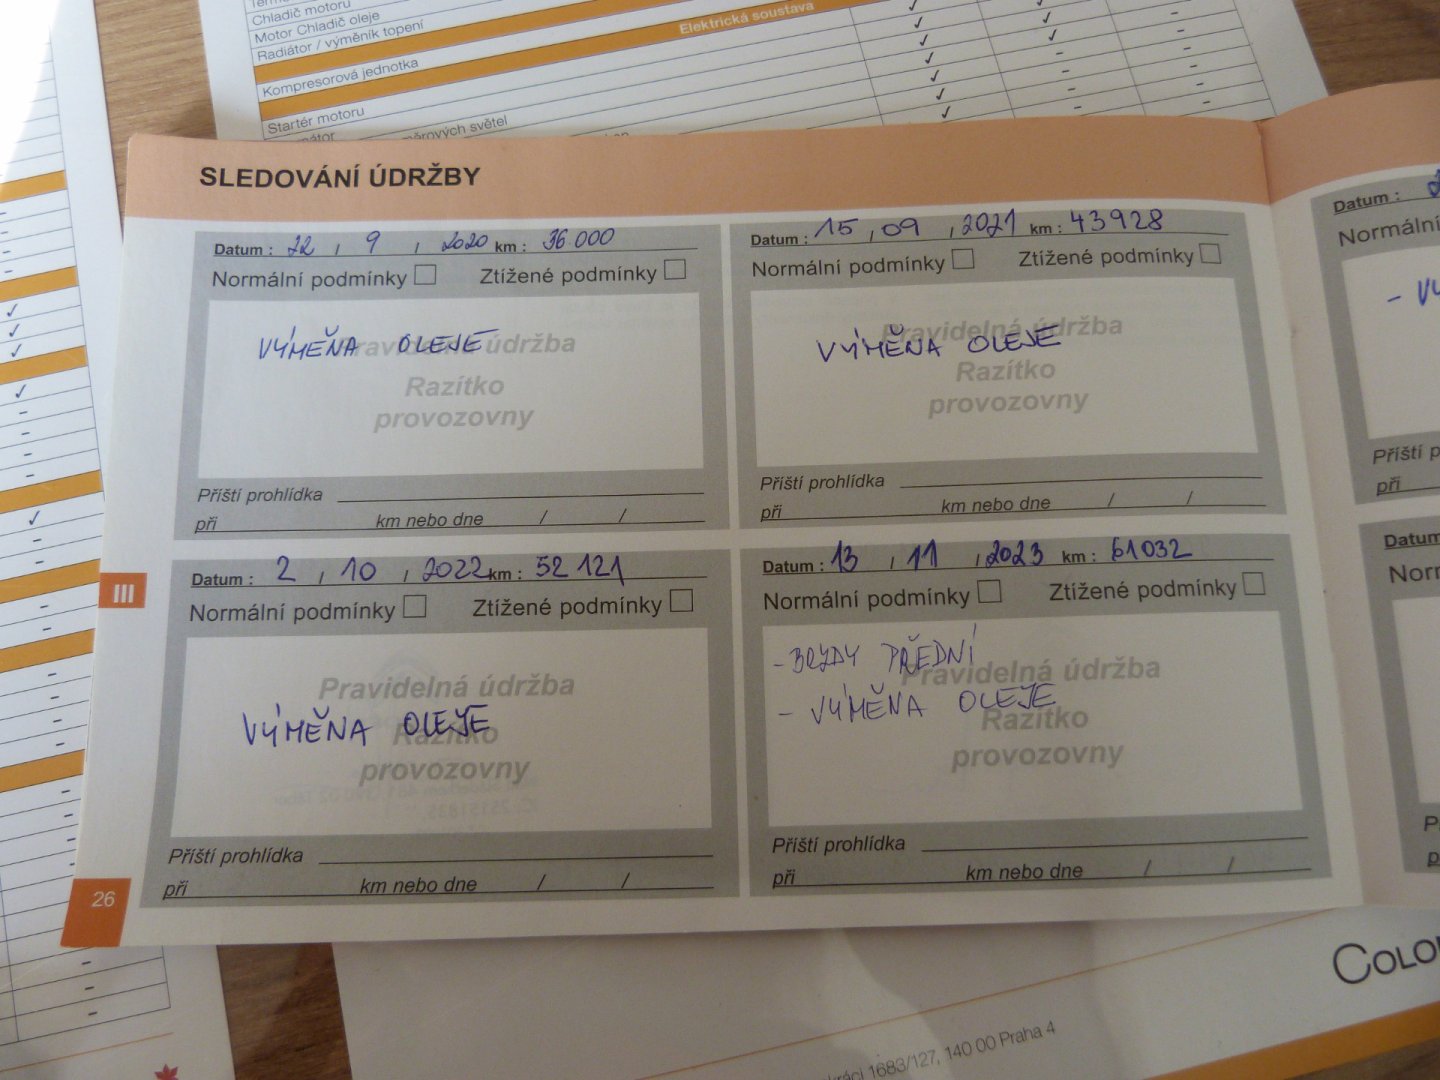 Chladič motoru
Motor Chladič oleje
Radiátor / výměník topení
Elektrická soustava
Kompresorová jednotka
Startér motoru
SLEDOVÁNÍ ÚDRŽBY
Datum : 22 , 9 , 2020 km : 36 000
Normální podmínky Ztížené podmínky
Pravidelná údržba
VÝMĚŇA OLEJE
Razítko
provozovny
Příští prohlídka
při km nebo dne / /
Datum : 15 , 09 , 2021 km : 43928
Normální podmínky Ztížené podmínky
Pravidelná údržba
VÝMĚŇA OLEJE
Razítko
provozovny
Příští prohlídka
při km nebo dne / /
III
Datum : 2 , 10 , 2022 km : 52 121
Normální podmínky Ztížené podmínky
Pravidelná údržba
VÝMĚŇA OLEJE
Razítko
provozovny
Příští prohlídka
při km nebo dne / /
Datum : 13 , 11 , 2023 km : 61032
Normální podmínky Ztížené podmínky
- BRZDY PŘEDNÍ
Pravidelná údržba
- VÝMĚŇA OLEJE
Razítko
provozovny
Příští prohlídka
při km nebo dne / /
26
Datum :
Normální
Příští
při
Datum
při
1683/127, 140 00 Praha 4